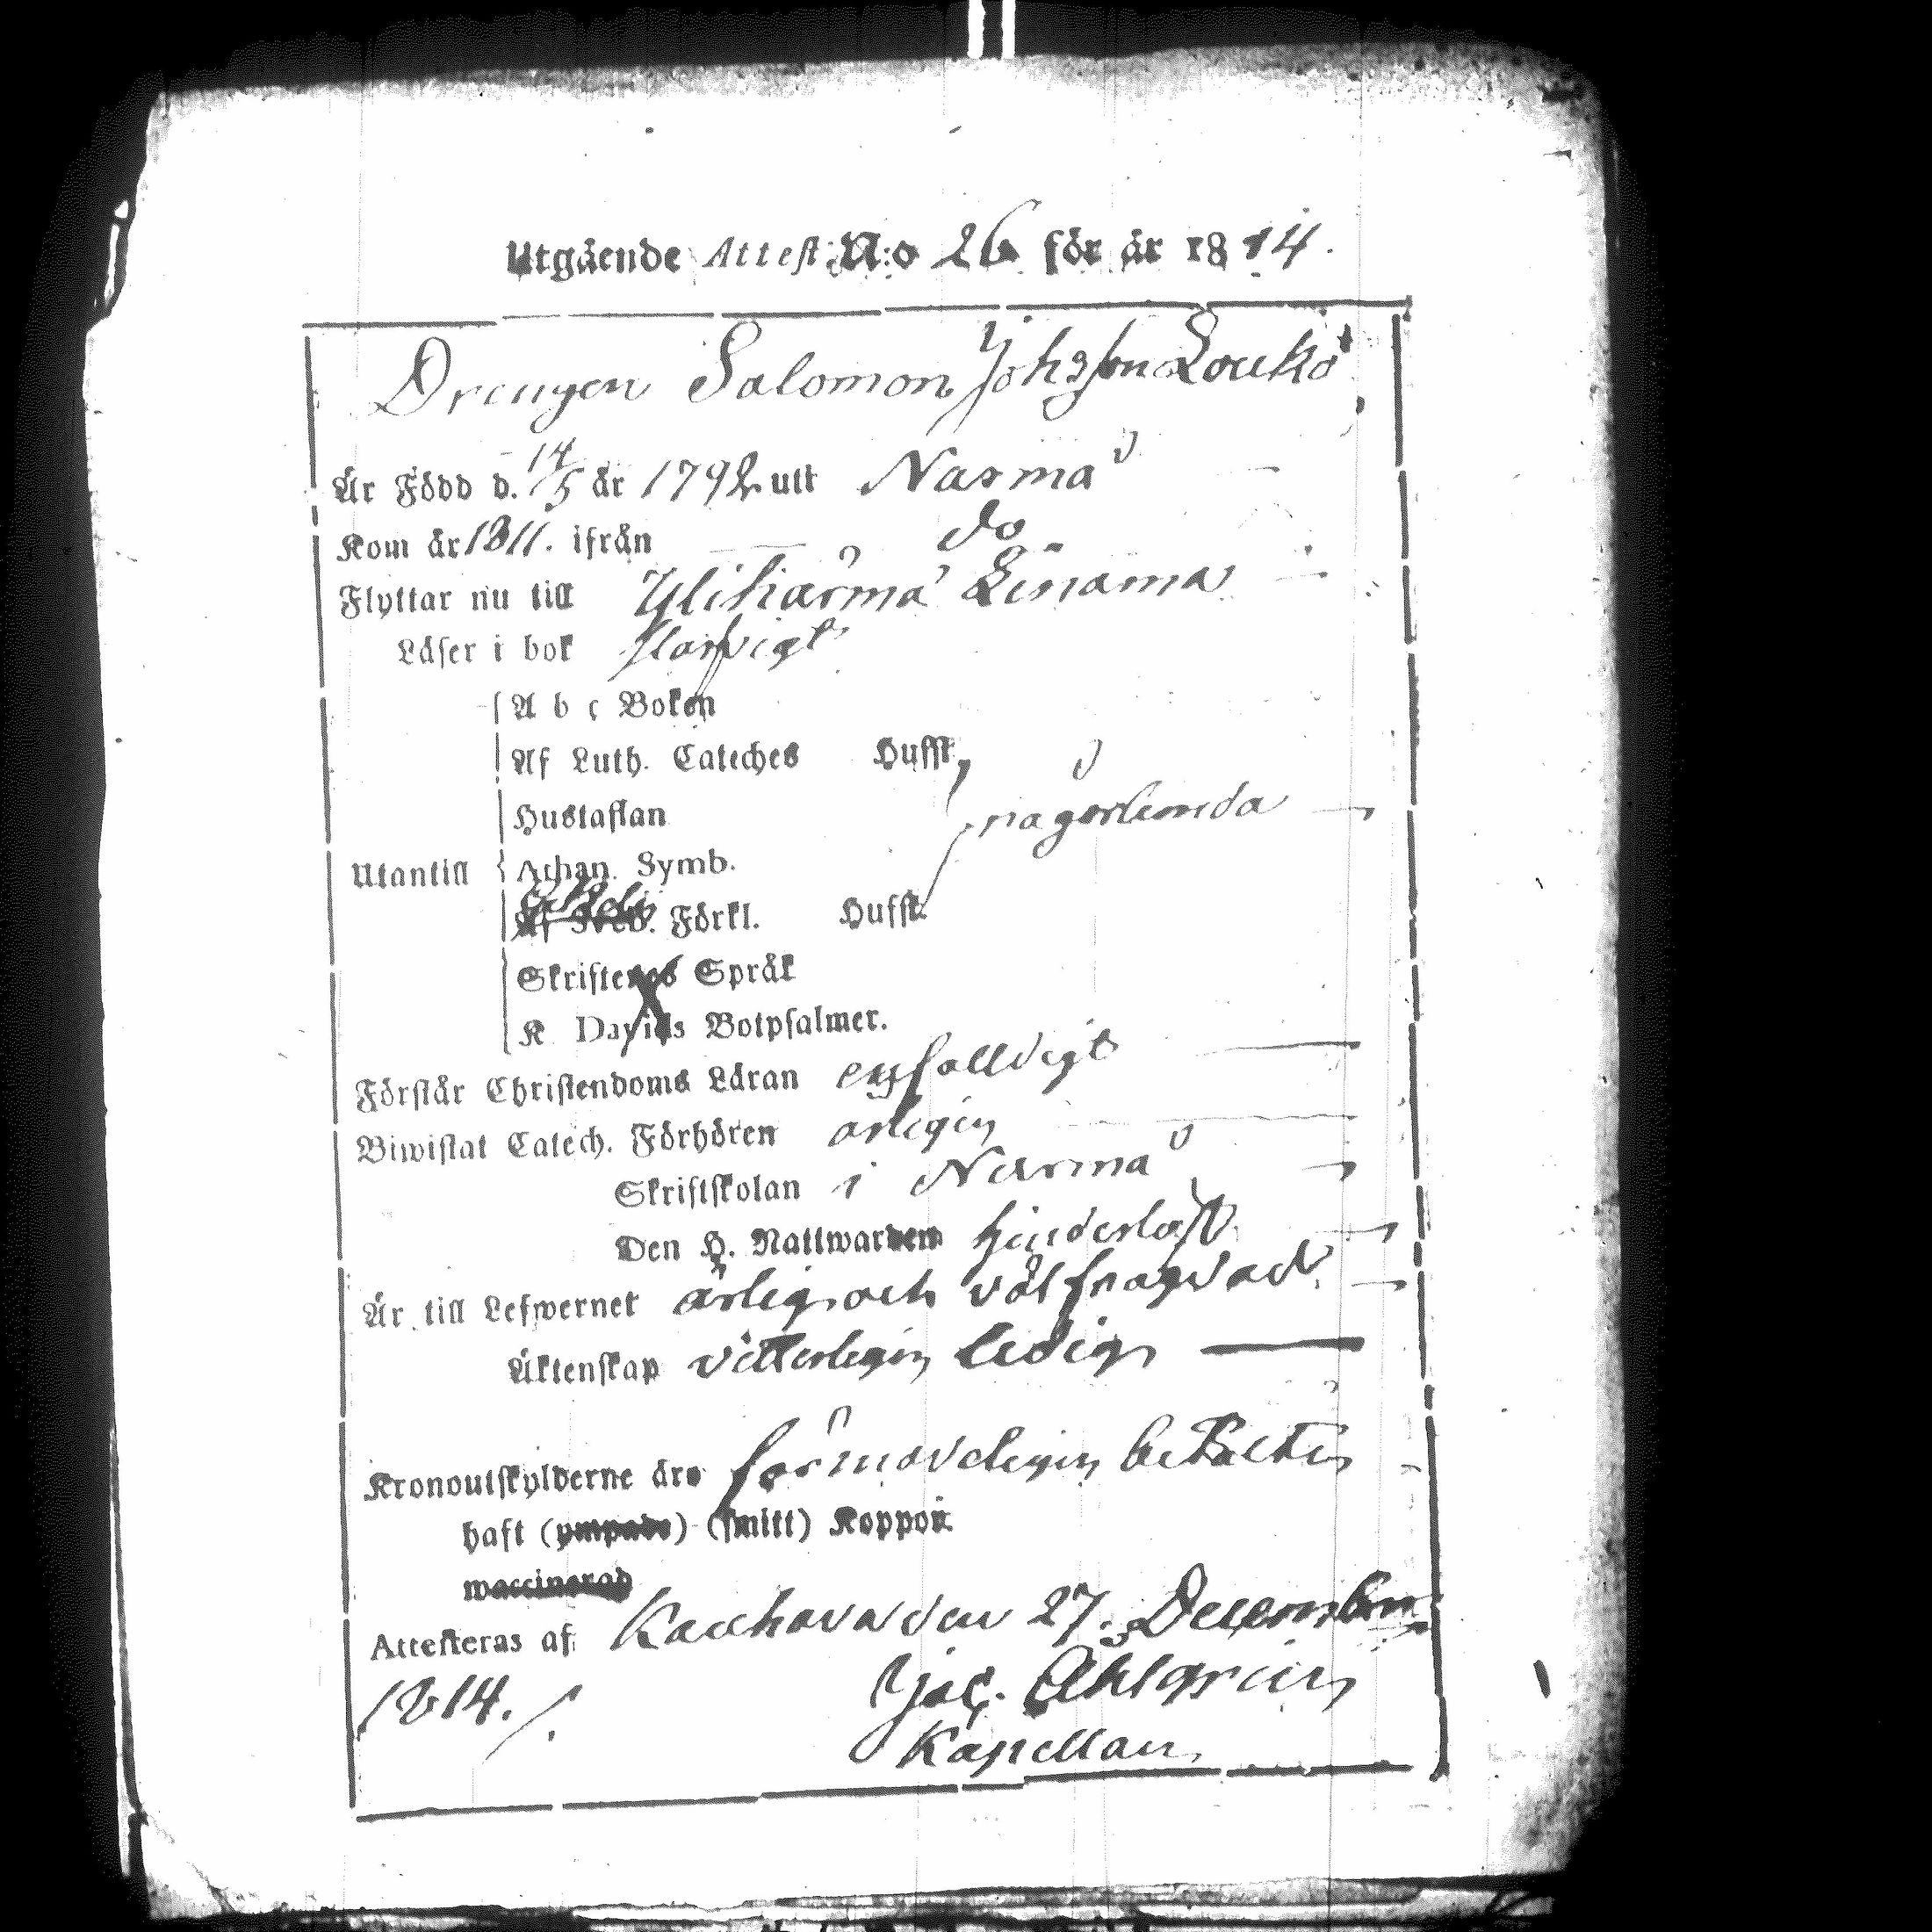 Utgående Attest N:o 26 för år 1814.
Drengen Salomon Johsson Loukå
Är Född d. 14/5 år 1792 utt Nårmå
Kom år 1811. ifrån do
Flyttar nu till Ylihärmä Lინama
Läser i bok slarfvigt
A b c Boken
Af Luth. Cateches Hufst.
Hustaflan någorlunda
Utantill Athan. Symb.
Af Sveb. Förkl. Hufst.
Skriftenes Språk
K Davids Botpsalmer.
Förstår Christendoms Läran enfalldigt
Biwistat Catech. Förhören årligen
Skriftskolan i Nårmå
Den H. Nattwarden hinderlöst
Är till Lefwernet ärlig och välfrägdad
Äktenskap vitterligen ledig
Kronoutskylderne äro förmodeligen betalte
haft (ympade) (smitt) Koppor.
waccinerad
Attesteras af Kauhava den 27. December
1814. Jac. Ahlgren
Kapellan